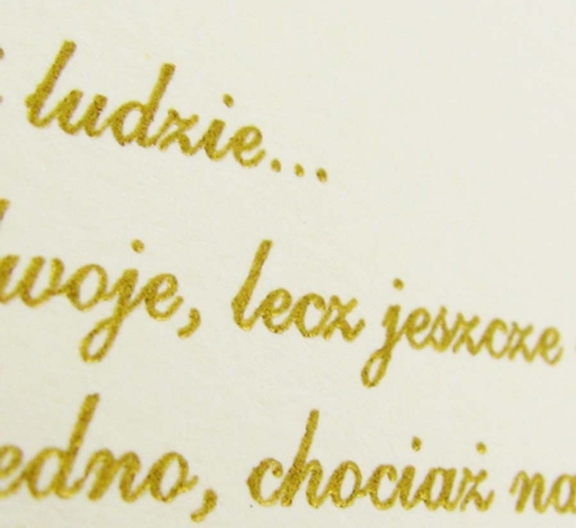 ludzie...
dwoje, lecz jeszcze
edno, chociaż na